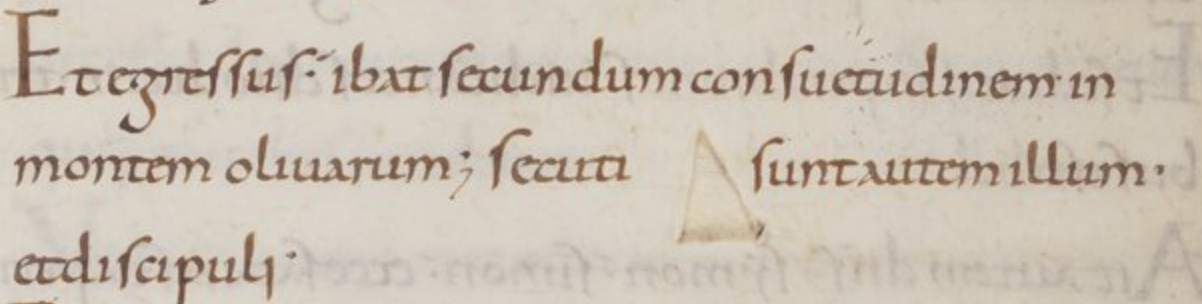 Et egressus· ibat secundum consuetudinem· in
montem oliuarum; secuti sunt autem illum·
et discipuli·